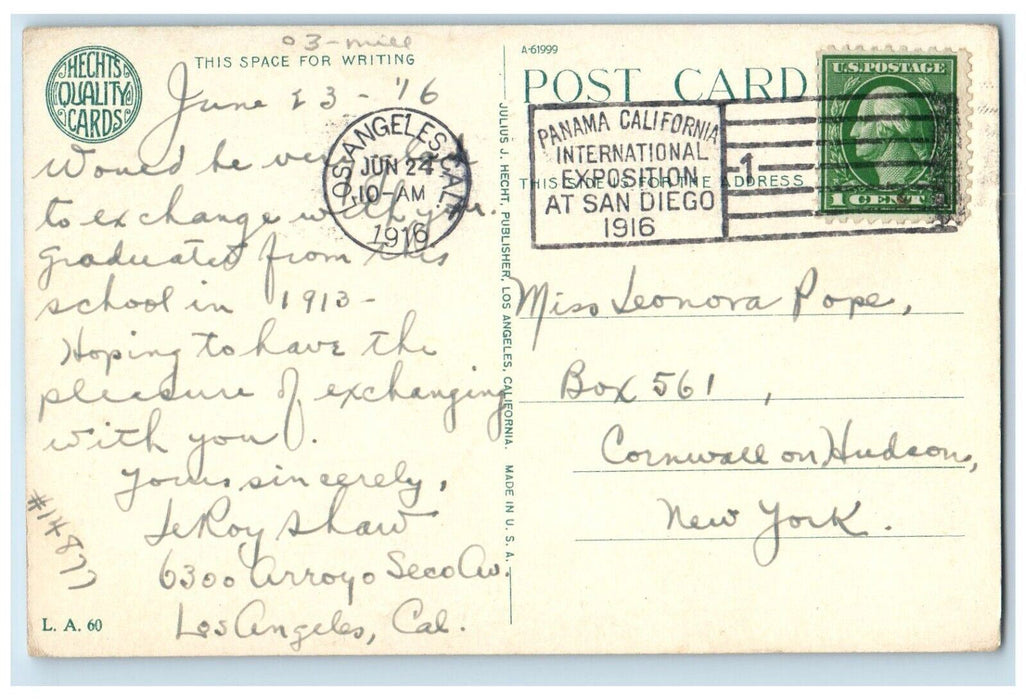 03-mill
HECHTS
QUALITY
CARDS
THIS SPACE FOR WRITING
June 23-'16
Would be very
to exchange with you.
Graduated from this
school in 1913-
Hoping to have the
pleasure of exchanging
with you.
Yours sincerely,
LeRoy Shaw
6300 Arroyo Seco Av.
Los Angeles, Cal.
#14877
L. A. 60
LOS ANGELES, CAL.
JUN 24
10-AM
1916
JULIUS J. HECHT, PUBLISHER, LOS ANGELES, CALIFORNIA. MADE IN U. S. A.
A-61999
POST CARD
PANAMA CALIFORNIA
INTERNATIONAL
EXPOSITION
AT SAN DIEGO
1916
1
THIS SIDE IS FOR THE ADDRESS
U.S. POSTAGE
1 CENT 1
Miss Leonora Pope,
Box 561,
Cornwall on Hudson,
New York.